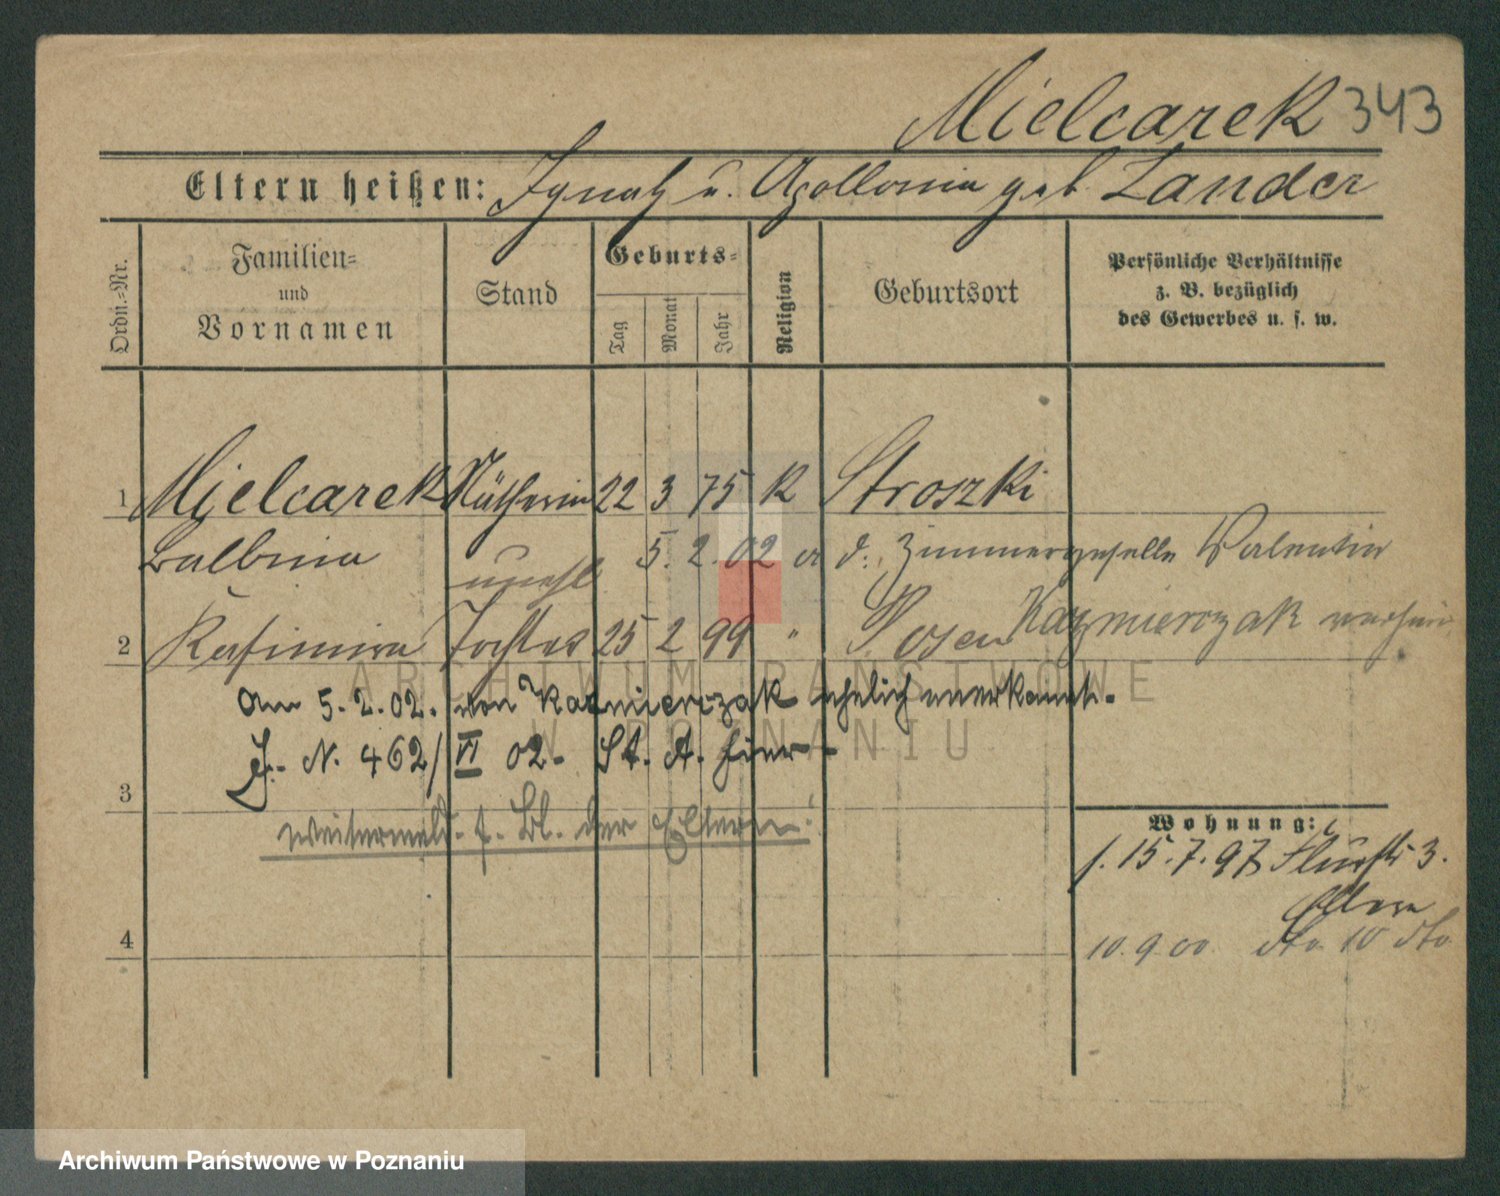 Mielcarek 343
Eltern heißen: Ignatz u. Apollonia geb. Zander
Ordn.=Nr.
Familien=
und
Vornamen
Stand
Geburts=
Tag
Monat
Jahr
Religion
Geburtsort
Persönliche Verhältnisse
z. B. bezüglich
des Gewerbes u. s. w.
1 Mielcarek Nätherin 22 3 75 K Stroszki
Balbina 5. 2. 02 d. Zimmergeselle Valentin
unehl
Kazmierczak
2 Kasimira Tochter 25 2 99 " Posen
Am 5. 2. 02. von Kazmierczak ehelich anerkannt.
J. N. 462/VI 02. St. A. hier
3
s. Bl. der Eltern!
Wohnung:
f. 15.7.97 3.
Eltern
4
10. 9 00. dto 10 dto
ARCHIWUM PAŃSTWOWE
W POZNANIU
Archiwum Państwowe w Poznaniu